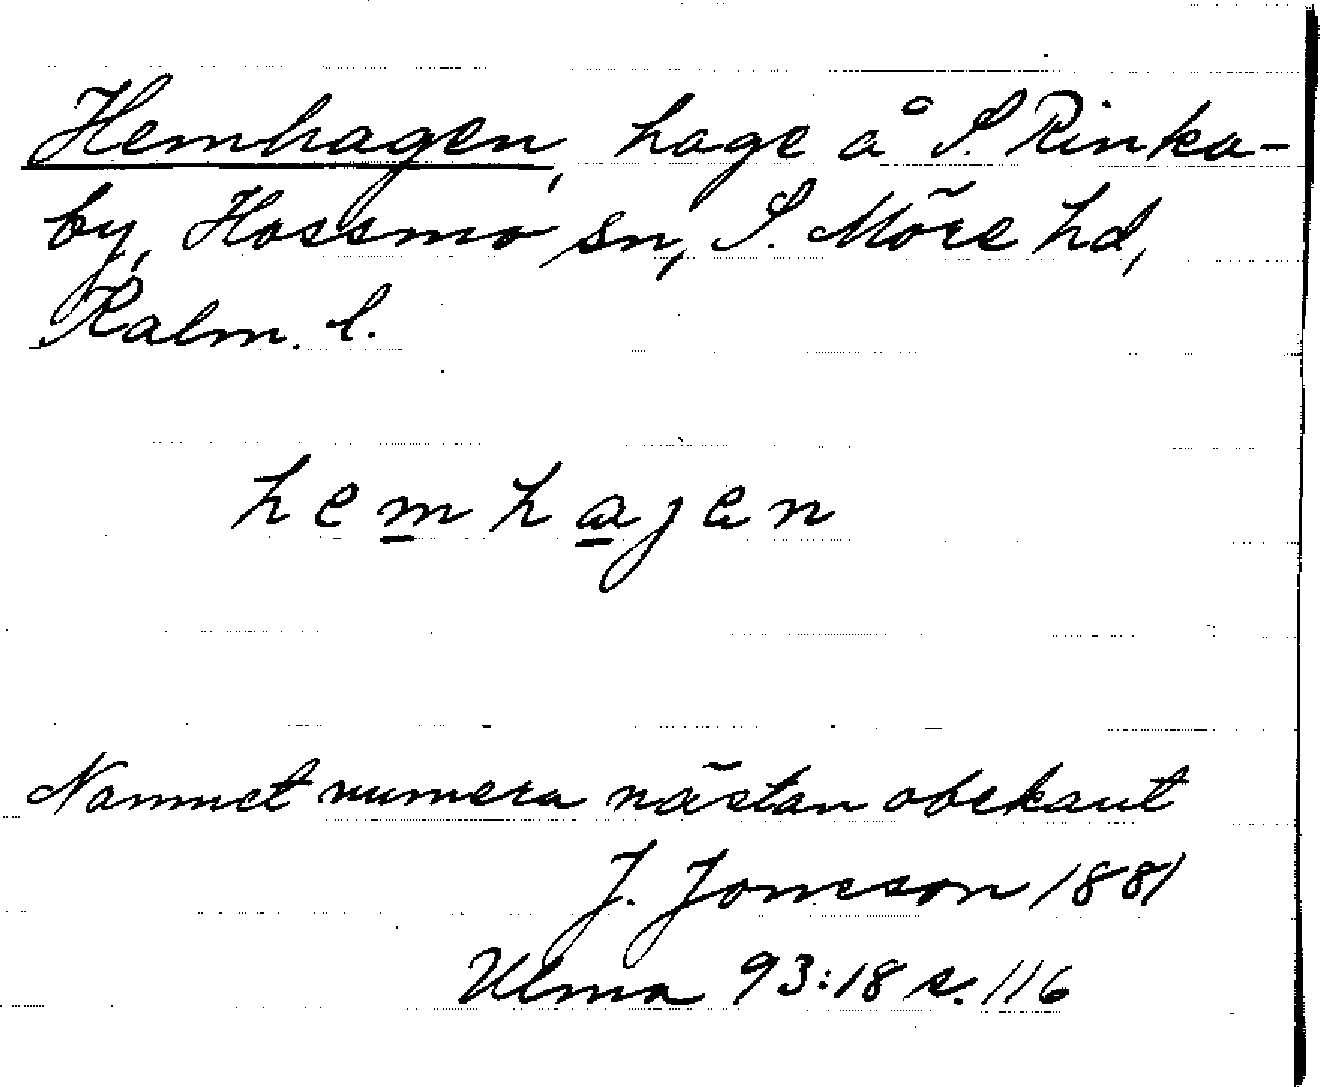 Hemhagen, hage å S. Rinka-
by, Hossmo sn, S. Möre hd,
Kalm. l.
hemhagen
Namnet numera nästan obekant
J. Joneson 1881
Ulma 93:18 s. 116